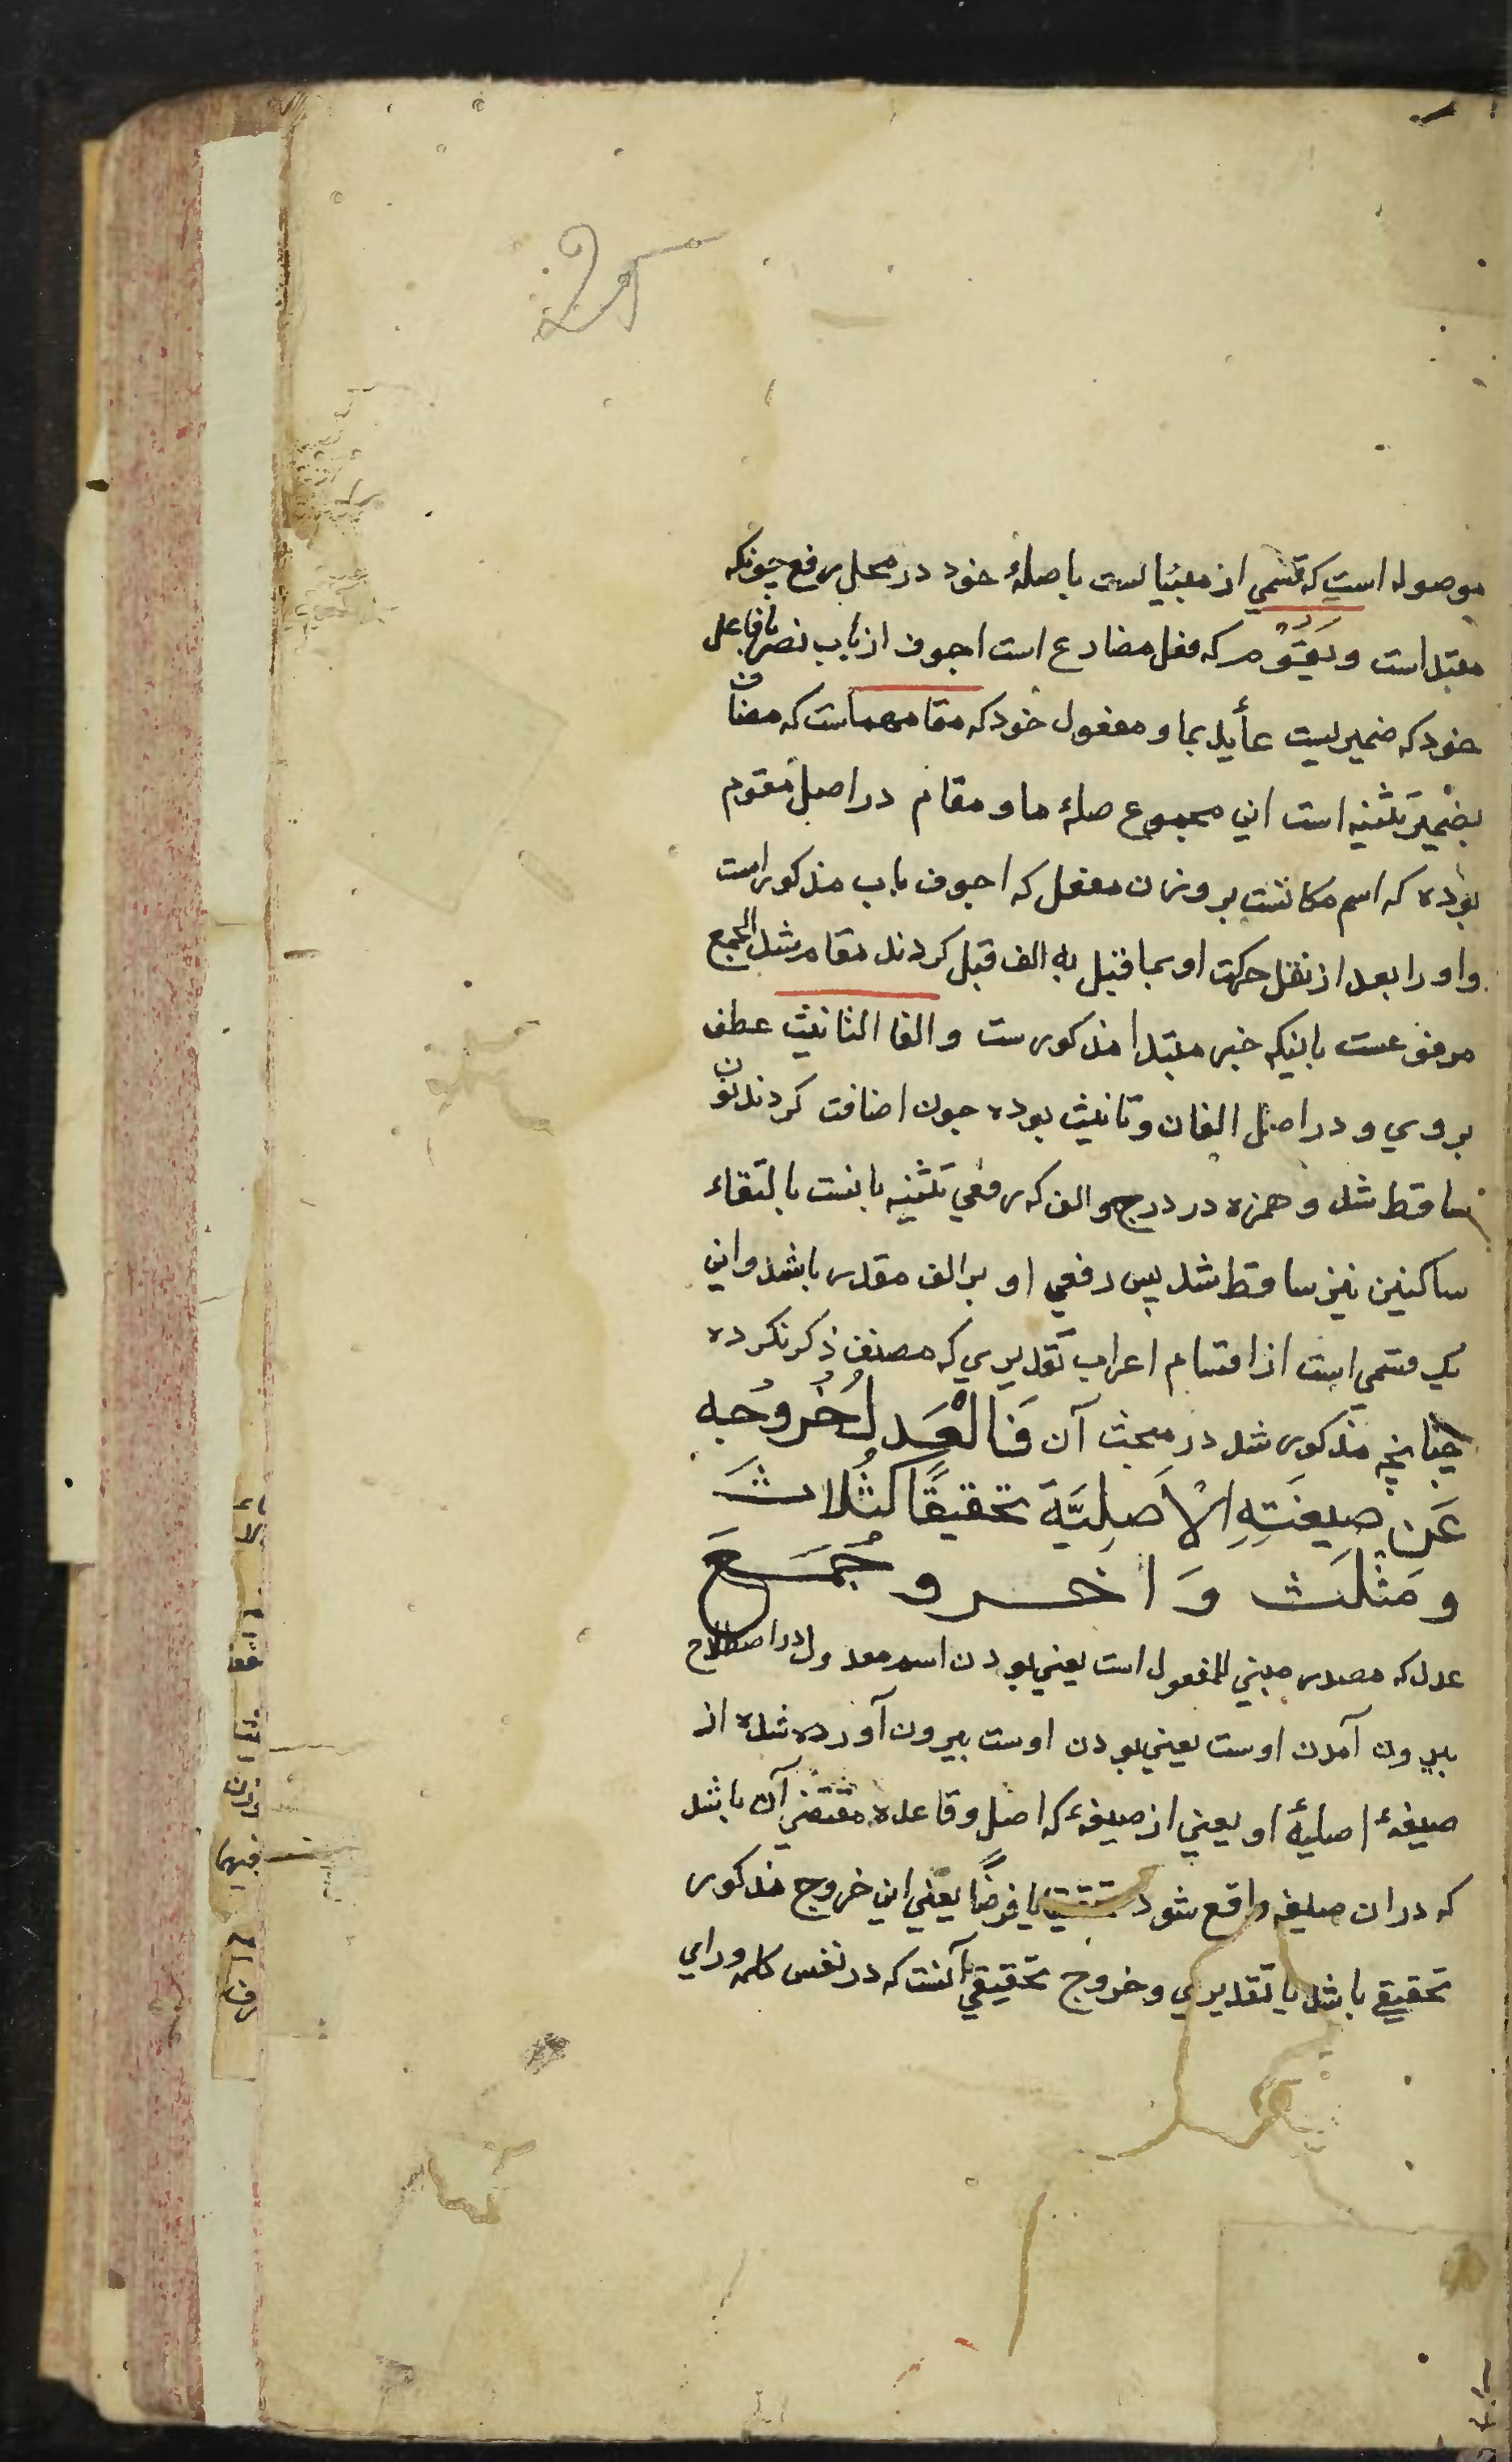 موصوله است که قسمي از مبنياست با صلهٔ خود در محل رفع چونکه
مبتداست و يَقُوم که فعل مضارع است اجوف از باب نصر با فاعل
خود که ضميريست عأيد بما و مفعول خود که مقامهماست که مضاف
بضمير تثنيه است اين مجموع صلهٔ ما و مقام در اصل مقوم
بوده که اسم مکانست بر وزن مفعل که اجوف باب مذکور است
واو را بعد از نقل حرکت او بما قبل به الف قبل کردند مقام شد الجمع
مرفوعست باينکه خبر مبتدا مذکورست و الفا التانيث عطف
بروي و در اصل الفان و تانيث بوده چون اضافت کردند نون
ساقط شد و همزه در درج والف که رفعي تثنيه بانست بالتقاء
ساکنين نيز ساقط شد پس رفعي او بر الف مقدر باشد واين
يک قسمي است از اقسام اعراب تقديري که مصنف ذکر نکرده
چنانچه مذکور شد در مبحث آن فَالْعَدلُ خُرُوجُه
عَن صِيغَتِهِ الْاَصلِيَّةِ تحقيقًا كثُلاثَ
و مَثْلَث وَ اخر و جُمَعَ
عدل که مصدر مبني للمفعول است يعني بودن اسم معدول در اصطلاح
بيرون آمدن اوست يعني بودن اوست بيرون آورده شده از
صيغهٔ اصليهٔ او يعني از صيغهٔ که اصل و قاعده مقتضي آن باشد
که دران صيغه واقع شود يا فرضًا يعني اين خروج مذکور
تحقيقي باشد يا تقديري و خروج تحقيقي آنست که در نفس کلمه وراي